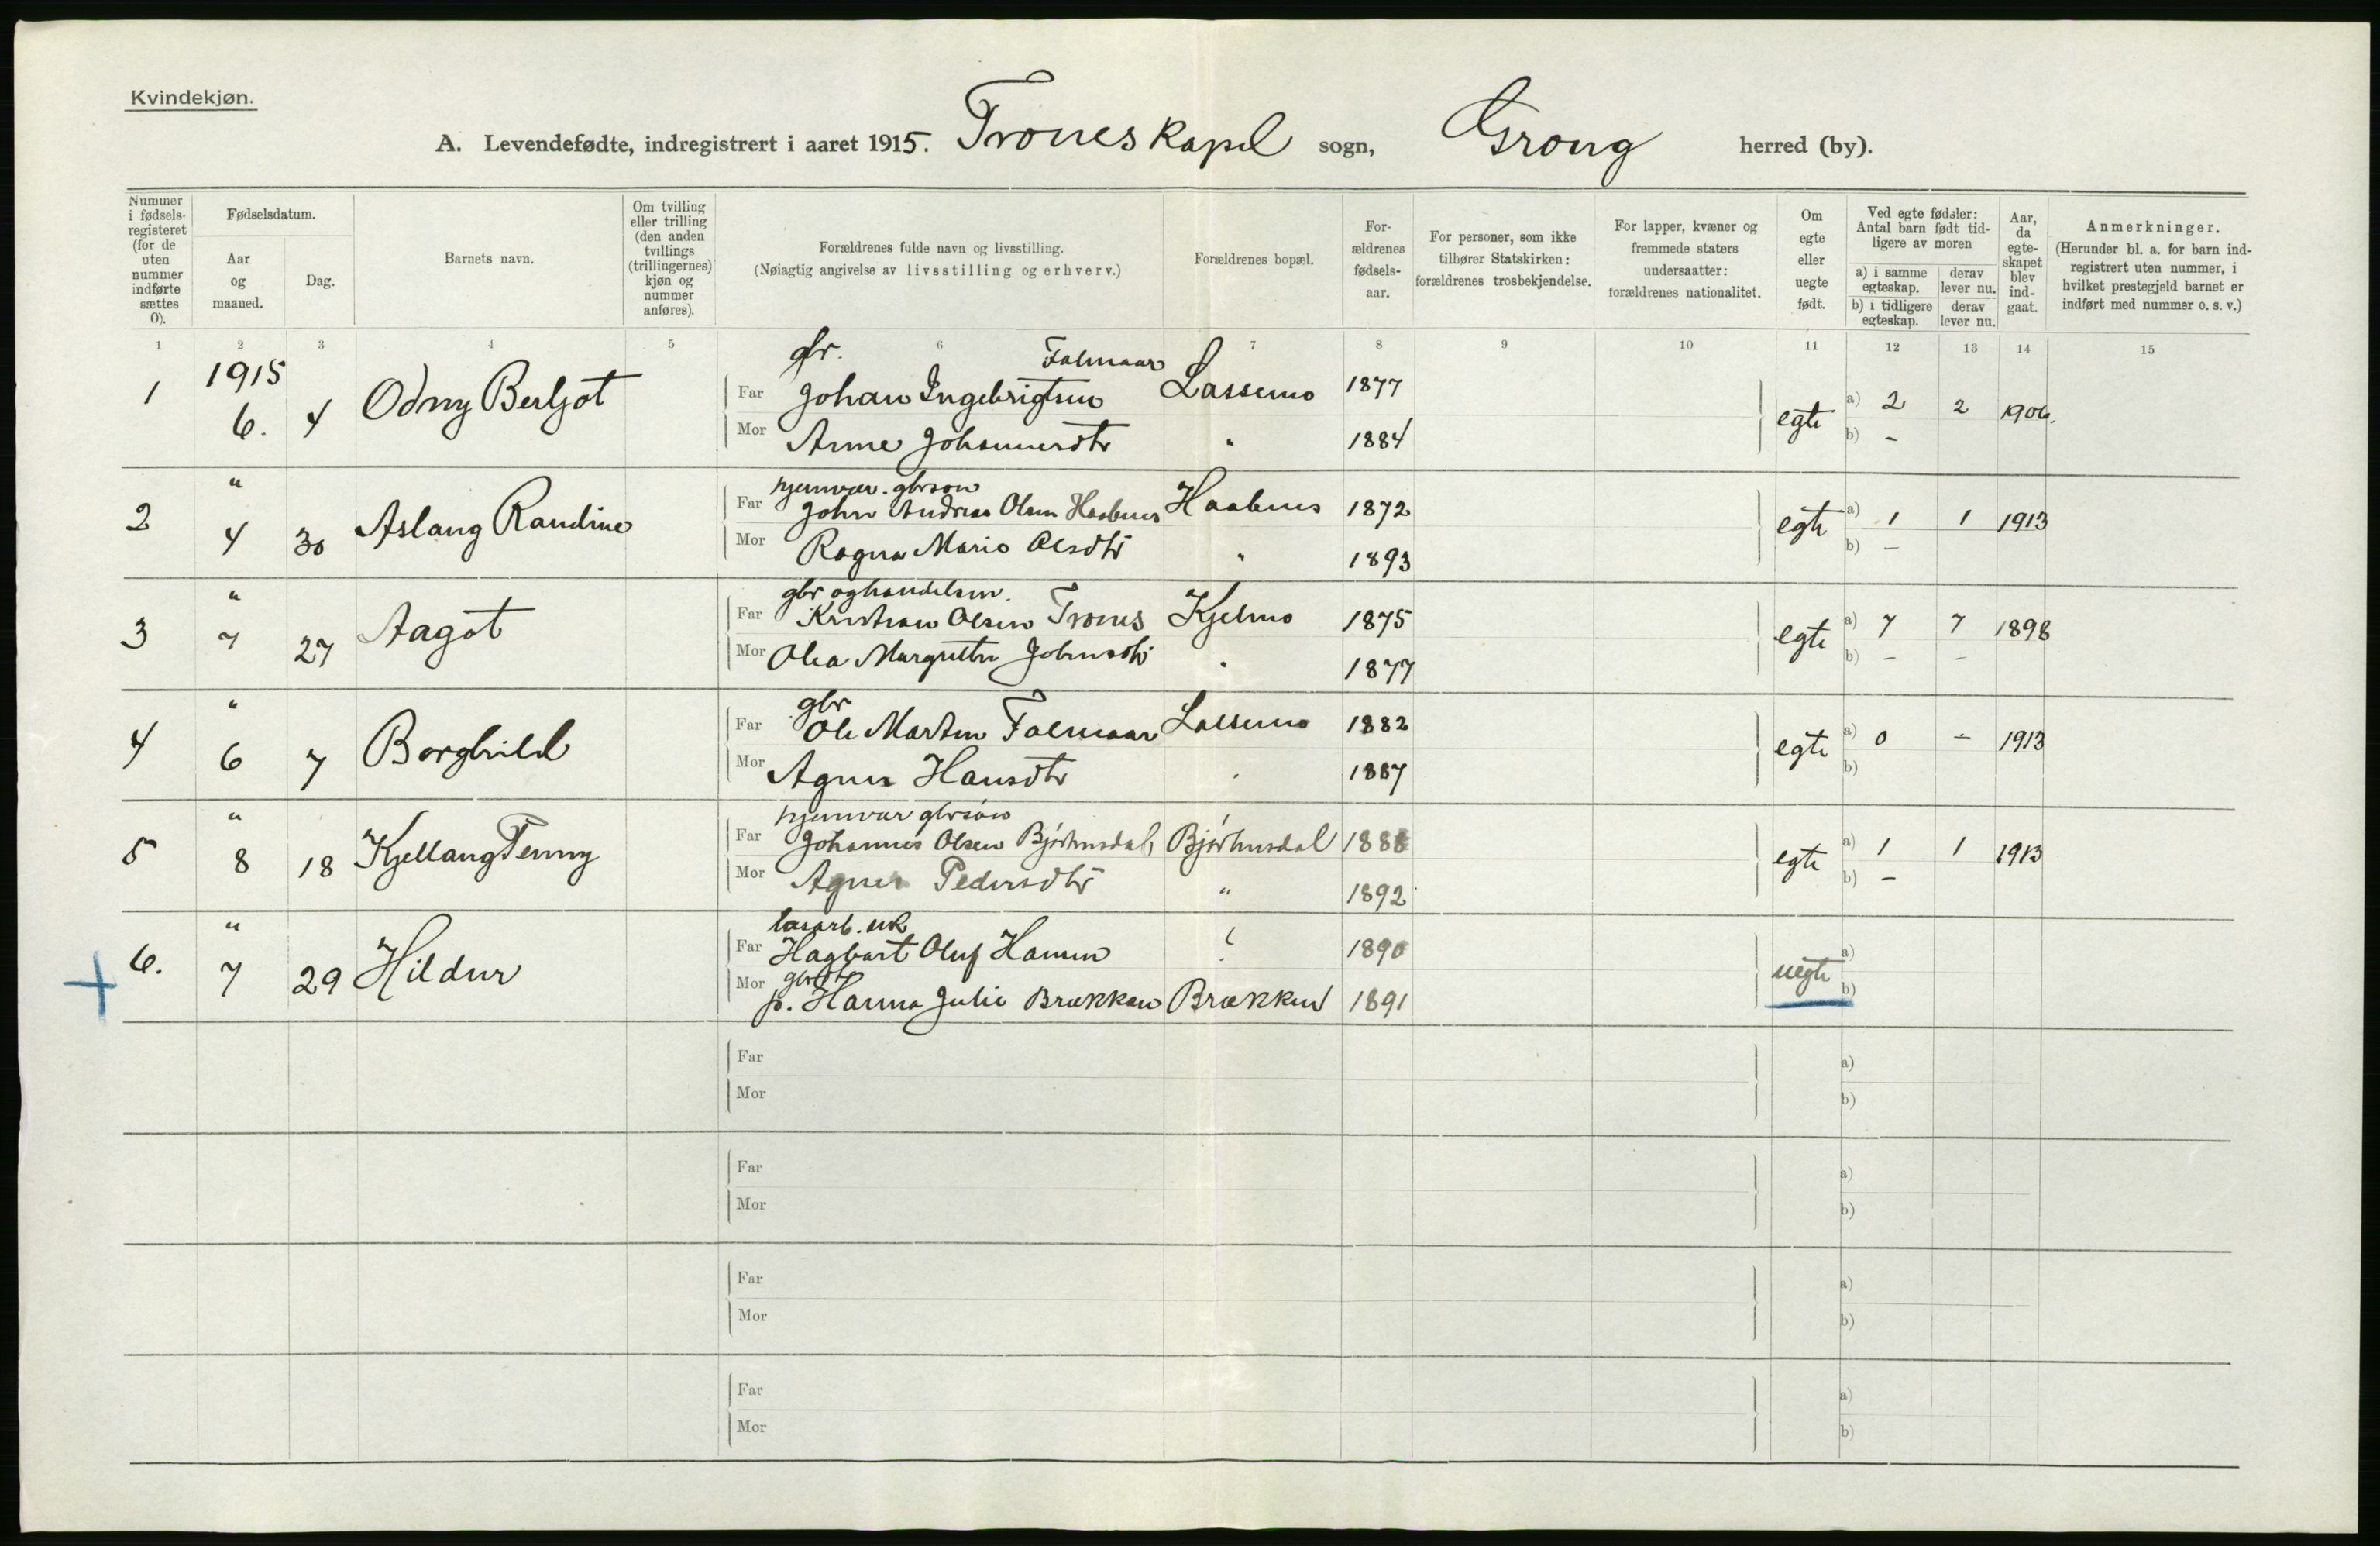 Kvindekjøn.
A. Levendefødte, indregistrert i aaret 1915. Trones Kapel sogn, Grong herred (by).
Nummer i fødsels-registeret (for de uten nummer indførte sættes 0).
Fødselsdatum.
Aar og maaned.
Dag.
Barnets navn.
Om tvilling eller trilling (den anden tvillings (trillingernes) kjøn og nummer anføres).
Forældrenes fulde navn og livsstilling.
(Nøiagtig angivelse av livsstilling og erhverv.)
Forældrenes bopæl.
For-ældrenes fødsels-aar.
For personer, som ikke tilhører Statskirken: forældrenes trosbekjendelse.
For lapper, kvæner og fremmede staters undersaatter: forældrenes nationalitet.
Om egte eller uegte født.
Ved egte fødsler: Antal barn født tid-ligere av moren
a) i samme egteskap. derav lever nu.
b) i tidligere egteskap. derav lever nu.
Aar, da egte-skapet blev ind-gaat.
Anmerkninger.
(Herunder bl. a. for barn ind-registrert uten nummer, i hvilket prestegjeld barnet er indført med nummer o. s. v.)
1 2 3 4 5 6 7 8 9 10 11 12 13 14 15
1915
gbr. Falmaar
1 6. 4 Odny Berljot Far Johan Ingebrigtsen Lassemo 1877 egte a) 2 2 1906.
Mor Anne Johannesdtr " 1884 b) –
" hjemvær. gbrsøn
2 4 30 Aslaug Randine Far John Andreas Olsen Haabnes Haabnes 1872 egte a) 1 1 1913
Mor Ragna Marie Olsdtr " 1893 b) –
" gbr og handelsm.
3 7 27 Aagot Far Kristian Olsen Trones Kjelmo 1875 egte a) 7 7 1898
Mor Olea Margrethe Johnsdtr " 1877 b) – –
" gbr
4 6 7 Borghild Far Ole Martin Falmaar Lassemo 1882 egte a) 0 – 1913
Mor Agnes Hansdtr " 1887 b)
" hjemvær gbrsøn
5 8 18 Kjellaug Jenny Far Johannes Olsen Bjørhusdal, Bjørhusdal 1888 egte a) 1 1 1913
Mor Agnes Pedersdtr " 1892 b) –
" løsarb. uk
6. 7 29 Hildur Far Hagbart Oluf Hansen ? 1890 uegte a)
gbrdtr
Mor p. Hanna Julie Brækken Brækken 1891 b)
Far a)
Mor b)
Far a)
Mor b)
Far a)
Mor b)
Far a)
Mor b)